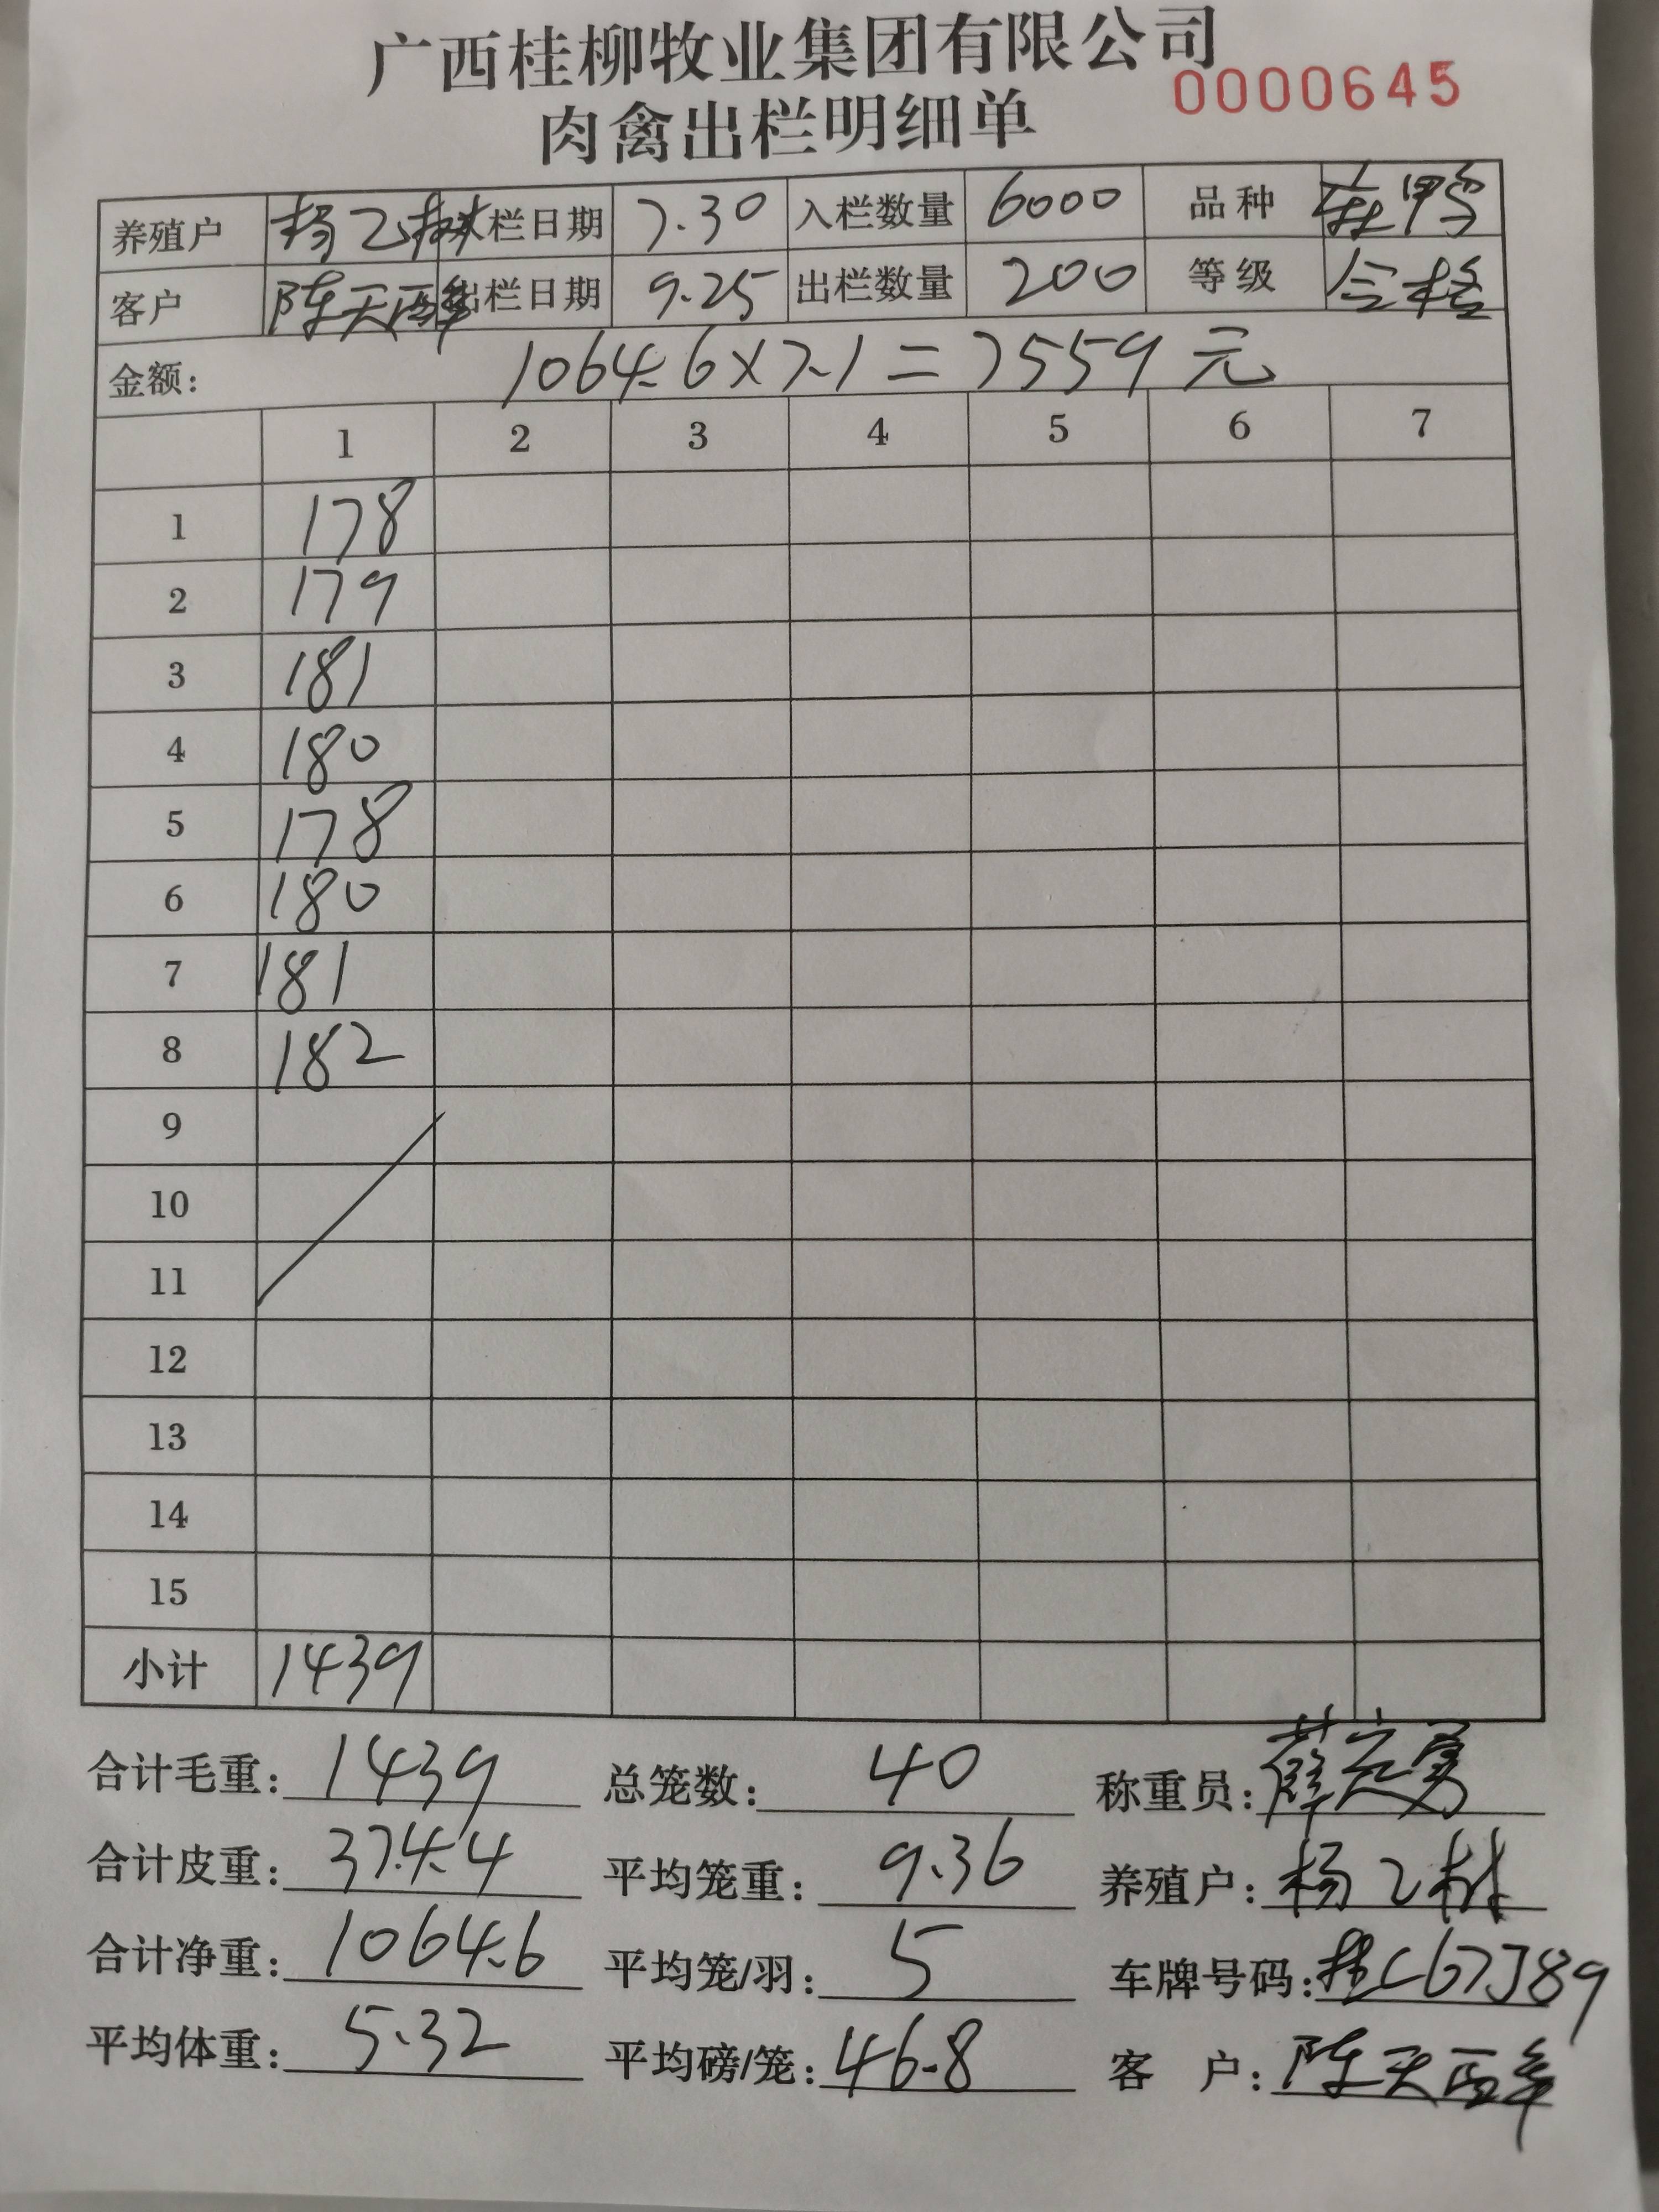 广西桂柳牧业集团有限公司
0000645
肉禽出栏明细单
养殖户 杨乙林 入栏日期 7.30 入栏数量 6000 品种 麻鸭
客户 陈天 出栏日期 9.25 出栏数量 200 等级 合格
金额: 1064.6×7.1=7559元
1 2 3 4 5 6 7
1 178
2 179
3 181
4 180
5 178
6 180
7 181
8 182
9
10
11
12
13
14
15
小计 1439
合计毛重: 1439 总笼数: 40 称重员: 薛定勇
合计皮重: 374.4 平均笼重: 9.36 养殖户: 杨乙林
合计净重: 1064.6 平均笼/羽: 5 车牌号码: 桂C67J89
平均体重: 5.32 平均磅/笼: 46.8 客 户: 陈天